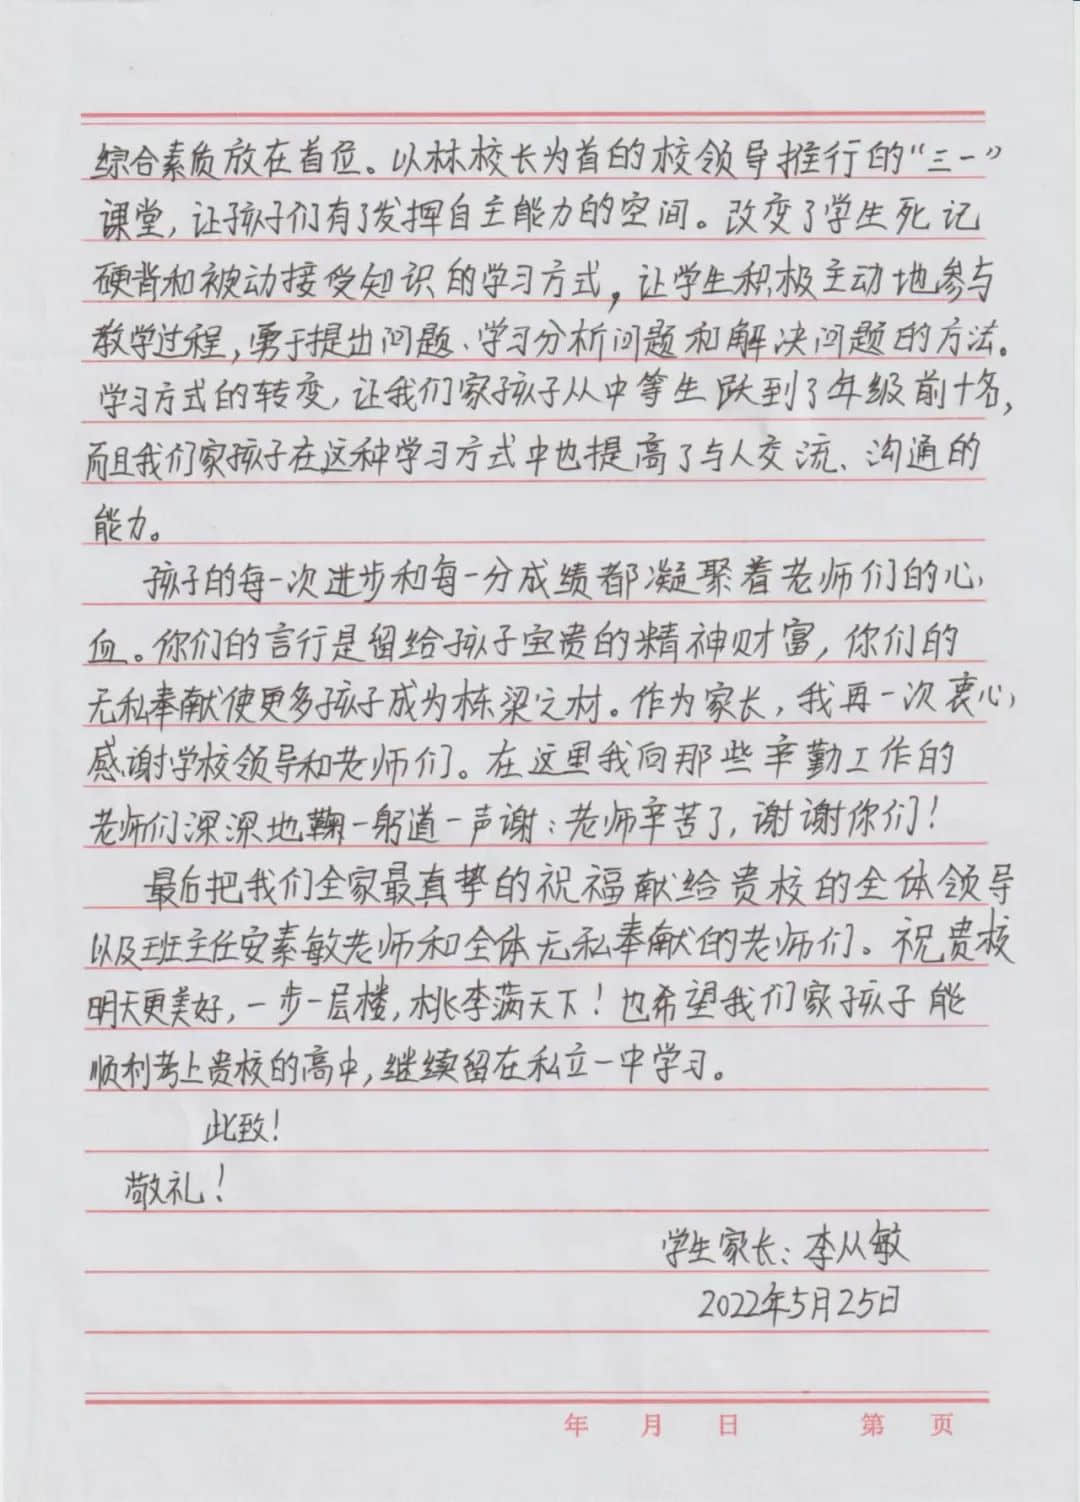 综合素质放在首位。以林校长为首的校领导推行的“三一”
课堂，让孩子们有了发挥自主能力的空间。改变了学生死记
硬背和被动接受知识的学习方式，让学生积极主动地参与
教学过程，勇于提出问题、学习分析问题和解决问题的方法。
学习方式的转变，让我们家孩子从中等生跃到了年级前十名，
而且我们家孩子在这种学习方式中也提高了与人交流、沟通的
能力。
孩子的每一次进步和每一分成绩都凝聚着老师们的心
血。你们的言行是留给孩子宝贵的精神财富，你们的
无私奉献使更多孩子成为栋梁之材。作为家长，我再一次衷心
感谢学校领导和老师们。在这里我向那些辛勤工作的
老师们深深地鞠一躬道一声谢：老师辛苦了，谢谢你们！
最后把我们全家最真挚的祝福献给贵校的全体领导
以及班主任安素敏老师和全体无私奉献的老师们。祝贵校
明天更美好，一步一层楼，桃李满天下！也希望我们家孩子能
顺利考上贵校的高中，继续留在私立一中学习。
此致！
敬礼！
学生家长：李从敏
2022年5月25日
年 月 日 第 页